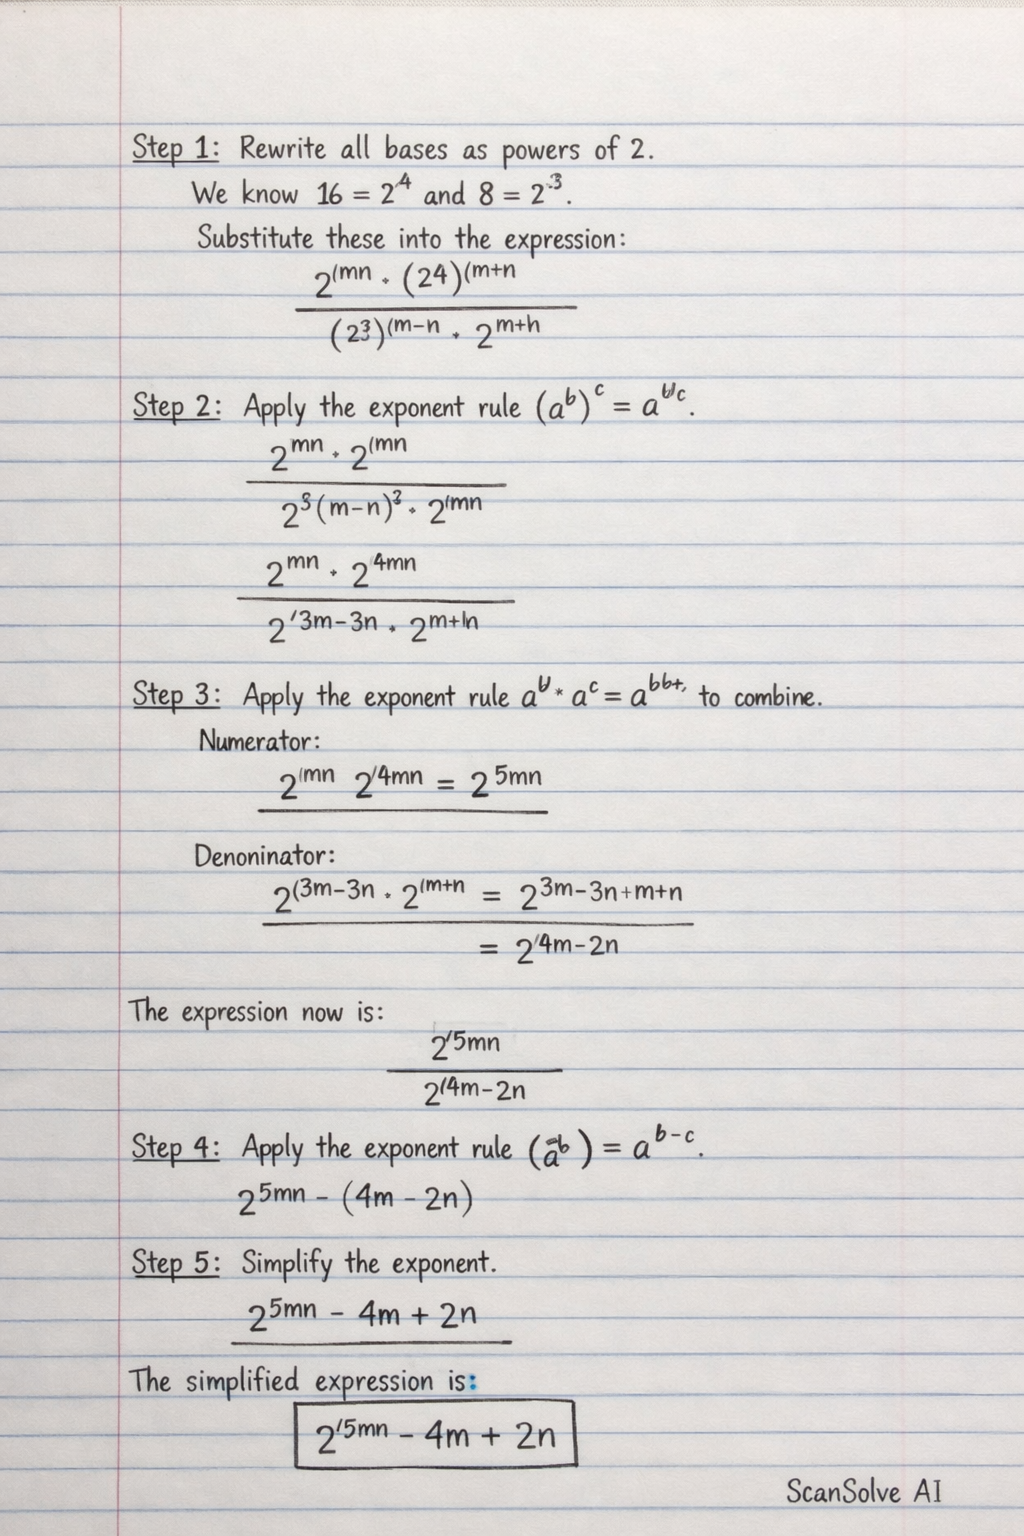 Step 1: Rewrite all bases as powers of 2.
We know 16 = 2^4 and 8 = 2^3.
Substitute these into the expression:
2^(mn · (24)^(m+n
(2^3)^(m-n · 2^m+n
Step 2: Apply the exponent rule (a^b)^c = a^b/c.
2^mn · 2^(mn
2^3(m-n)^3 · 2^(mn
2^mn · 2^4mn
2^'3m-3n · 2^m+ln
Step 3: Apply the exponent rule a^b * a^c = a^bb+, to combine.
Numerator:
2^(mn 2^'4mn = 2^5mn
Denoninator:
2^(3m-3n · 2^(m+n = 2^3m-3n+m+n
= 2^'4m-2n
The expression now is:
2^'5mn
2^(4m-2n
Step 4: Apply the exponent rule (a^b) = a^b-c.
2^5mn - (4m - 2n)
Step 5: Simplify the exponent.
2^5mn - 4m + 2n
The simplified expression is:
2^'5mn - 4m + 2n
ScanSolve AI